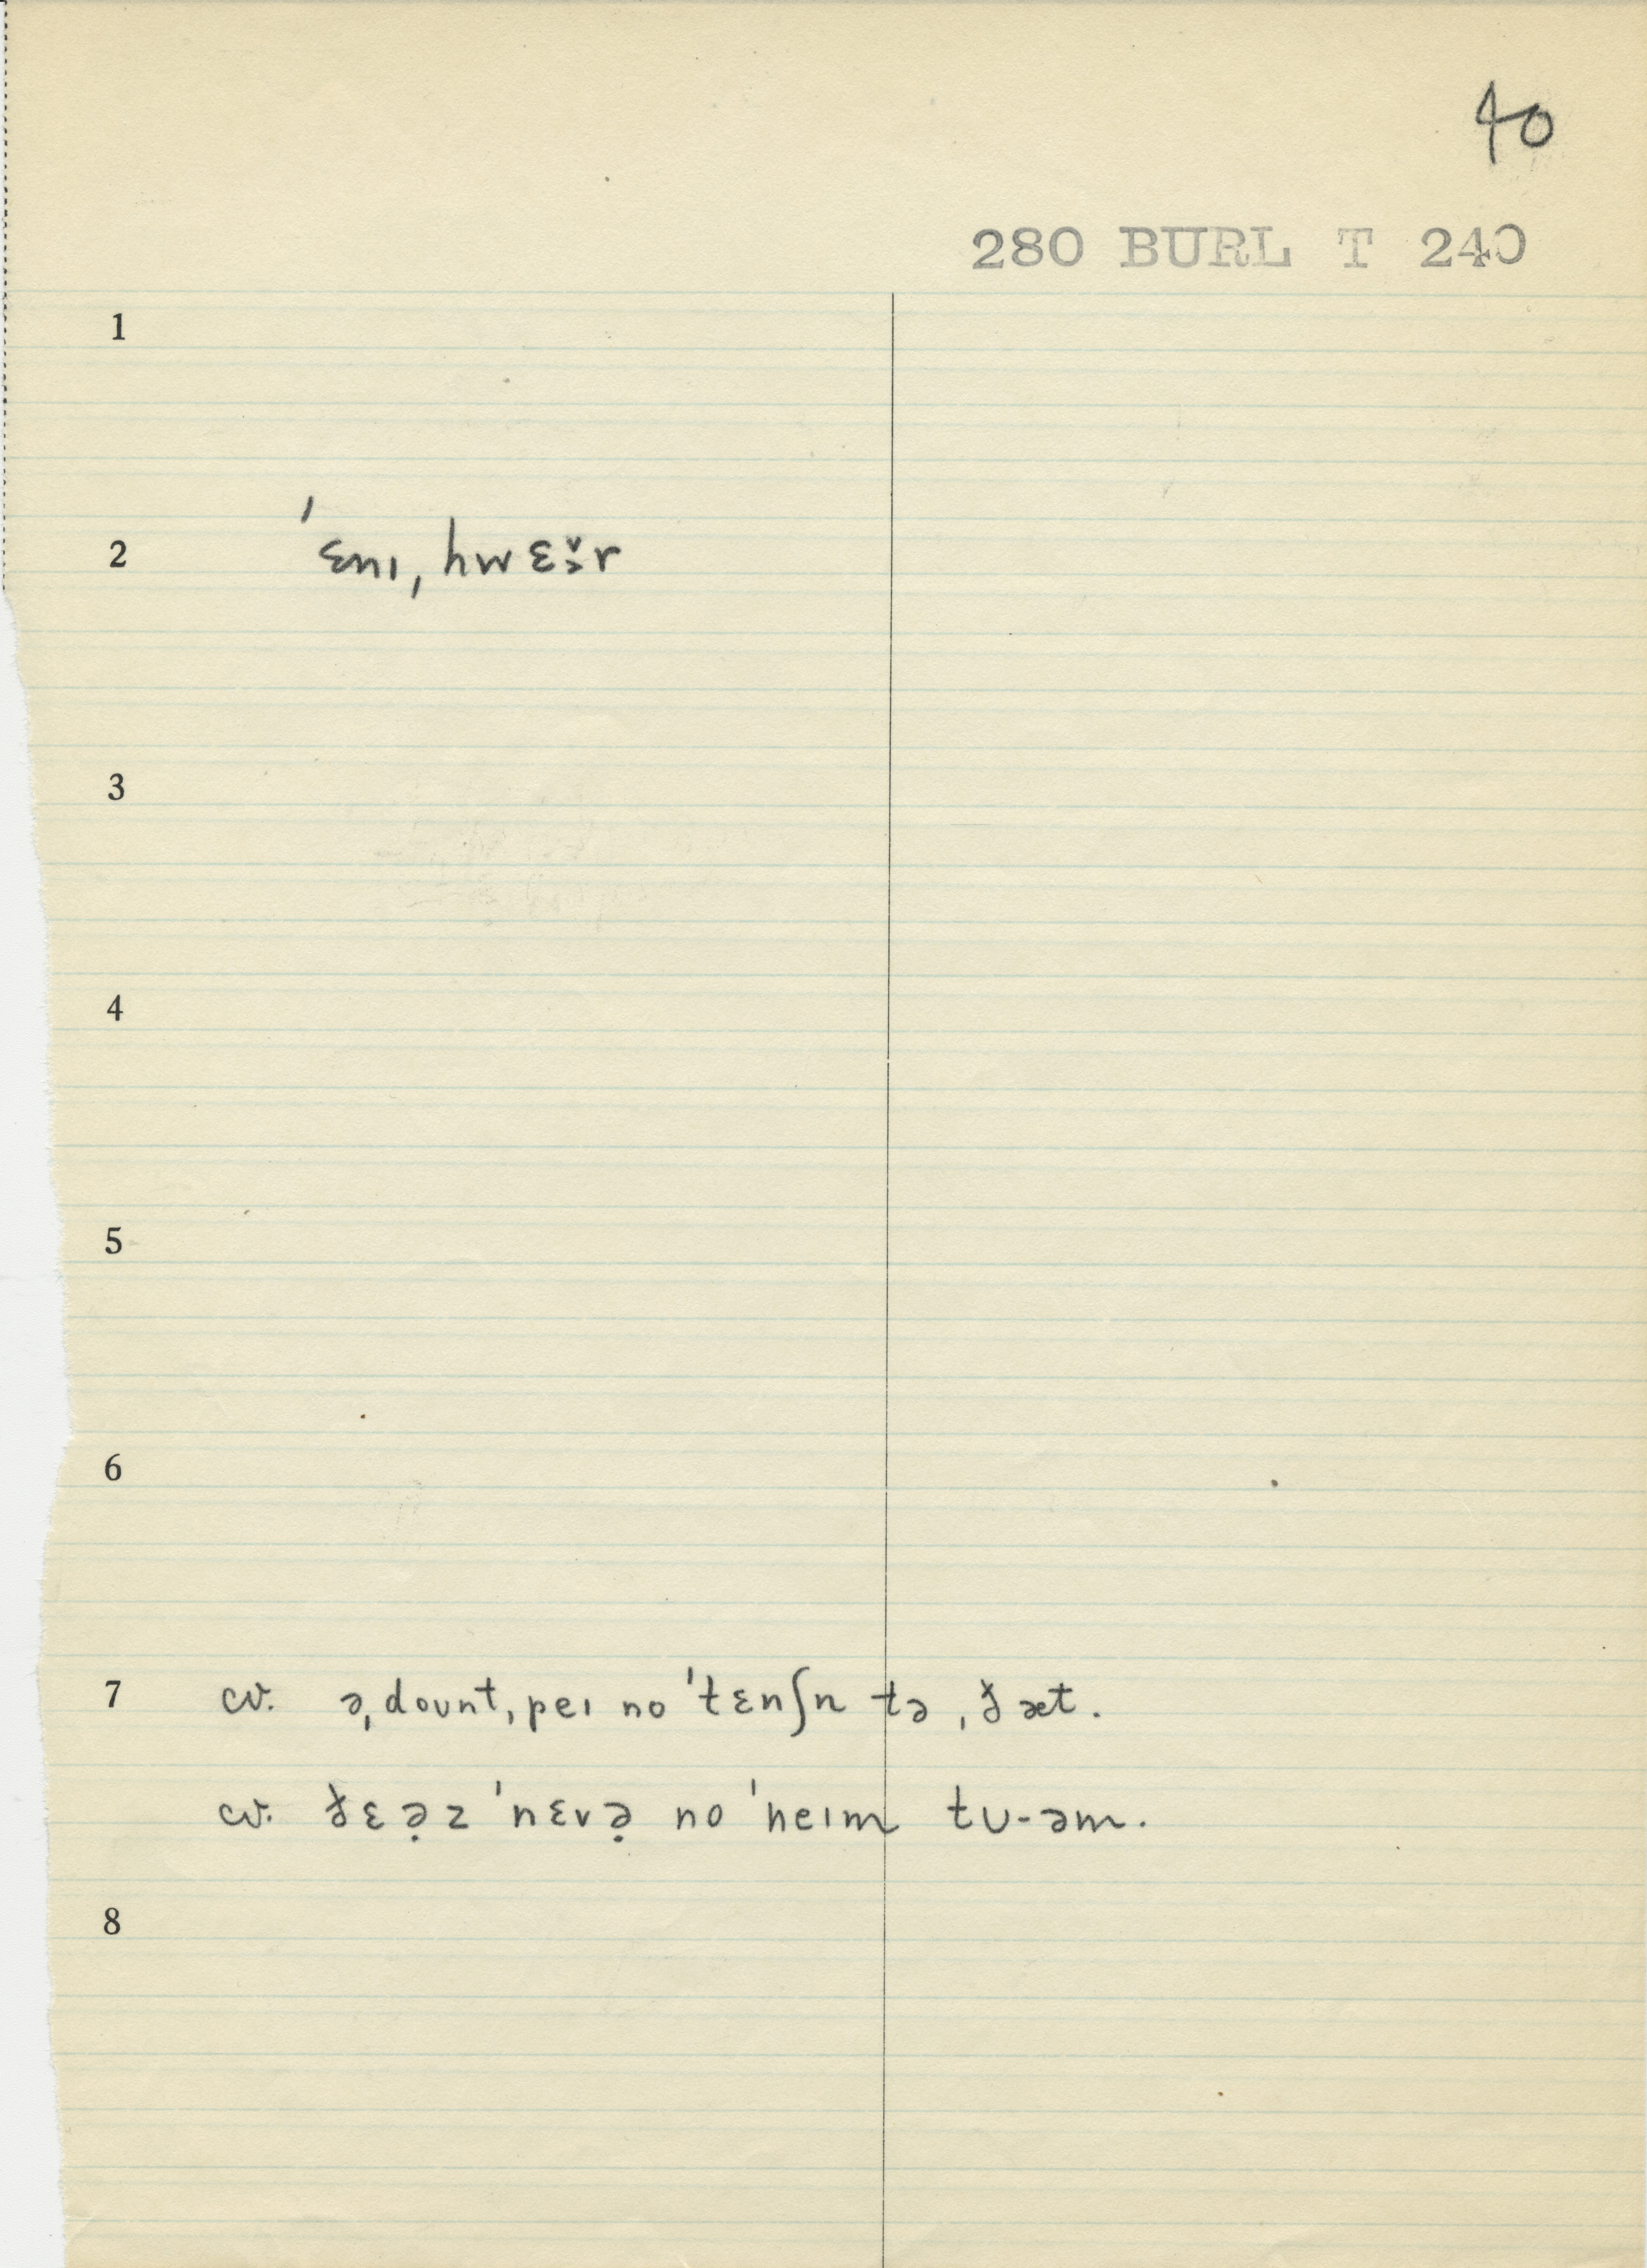 40
280 BURL T 240
1
2 ˈɛnɪˌhwɛə̯̌r
3
4
5
6
7 cv. əˌdoʊntˌpeɪ no ˈtɛnʃn tə ˌðæt.
cv. ðɛə̣z ˈnɛvə̣ no ˈneɪm tʊ-əm.
8